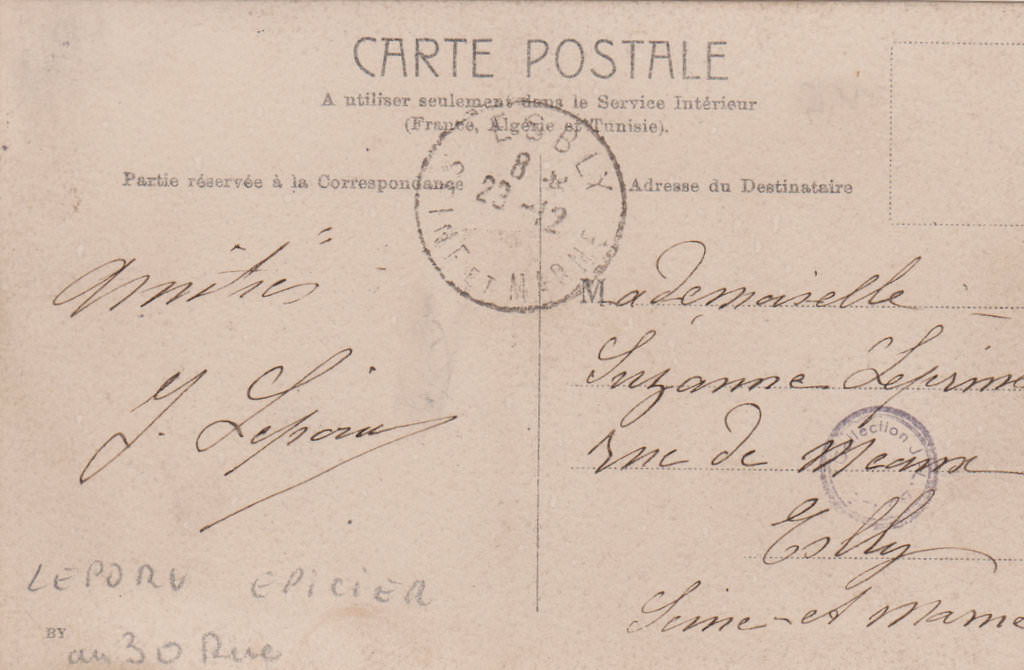 CARTE POSTALE
A utiliser seulement dans le Service Intérieur
(France, Algérie et Tunisie).
Partie réservée à la Correspondance
Adresse du Destinataire
ESBLY
8
23 -12
SEINE ET MARNE
Amitiés
J. Leporu
Mademoiselle
Suzanne
rue de Meaux
Esbly
Seine-et Marne
Collection J.
LEPORU EPICIER
au 30 Rue
BY